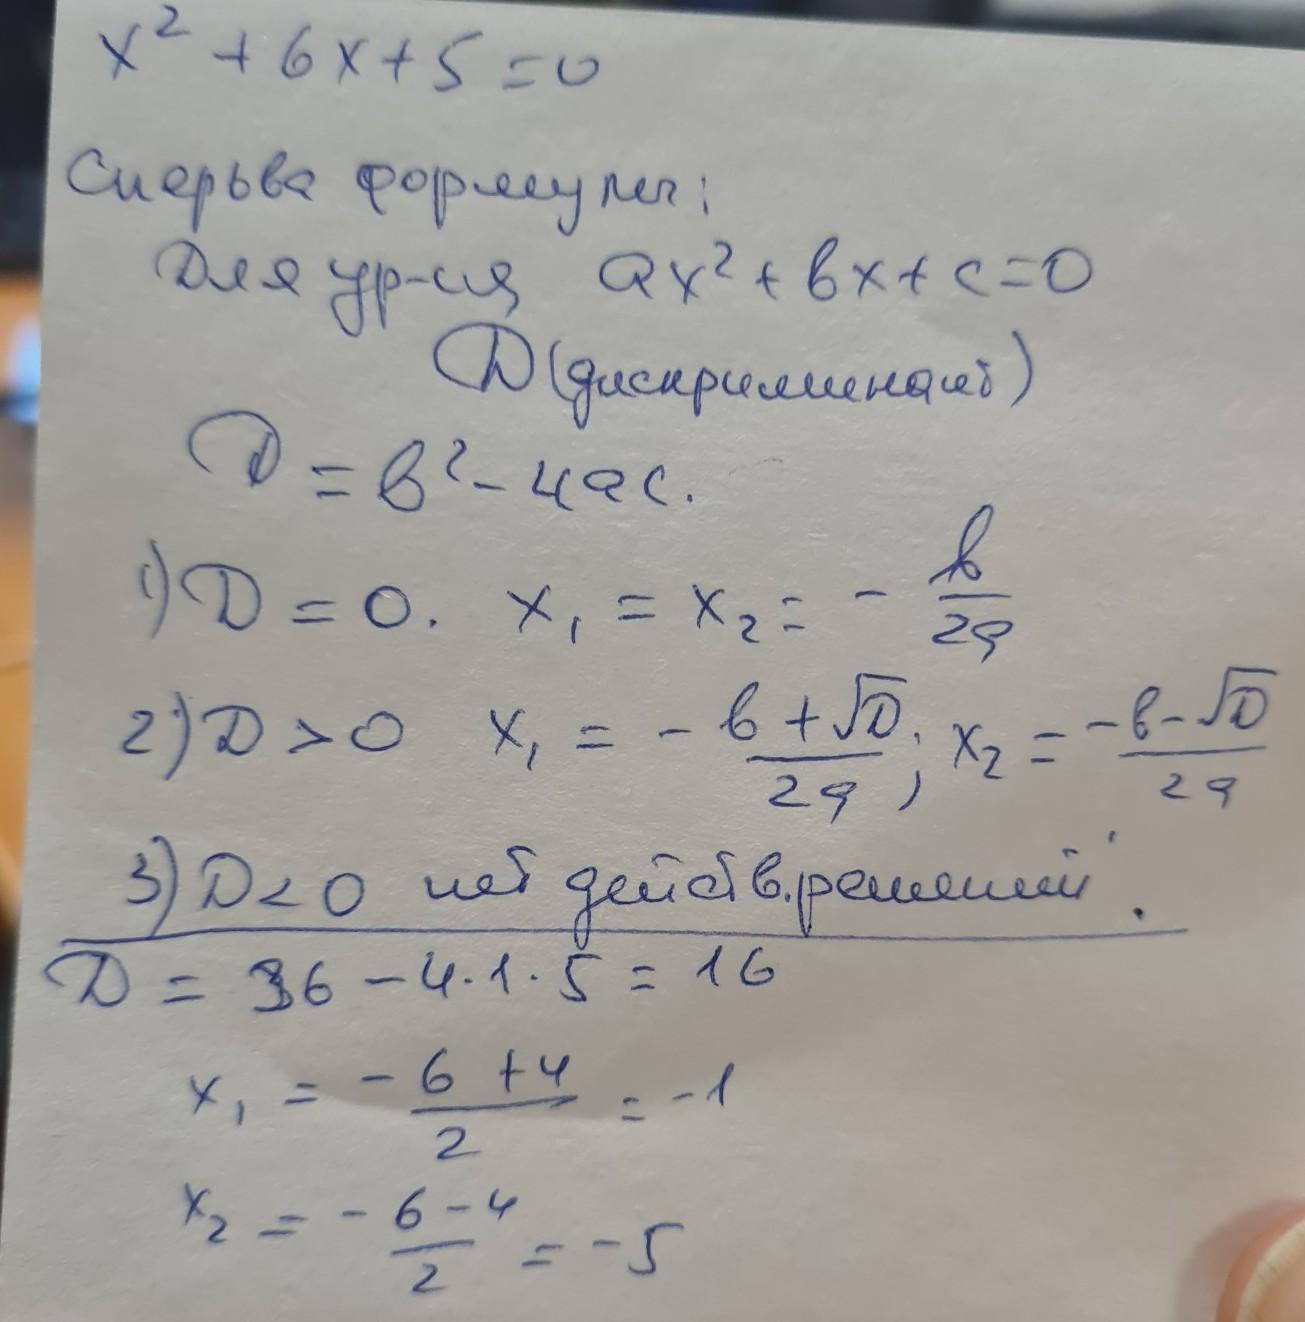 x² + 6x + 5 = 0
Сперьва формулы:
Для ур-ия ax² + bx + c = 0
D (дискриминант)
D = b² - 4ac.
1) D = 0. x₁ = x₂ = - b/2a
2) D > 0 x₁ = (-b + √D)/2a; x₂ = (-b - √D)/2a
3) D < 0 нет действ. решений.
D = 36 - 4·1·5 = 16
x₁ = (-6 + 4)/2 = -1
x₂ = (-6 - 4)/2 = -5